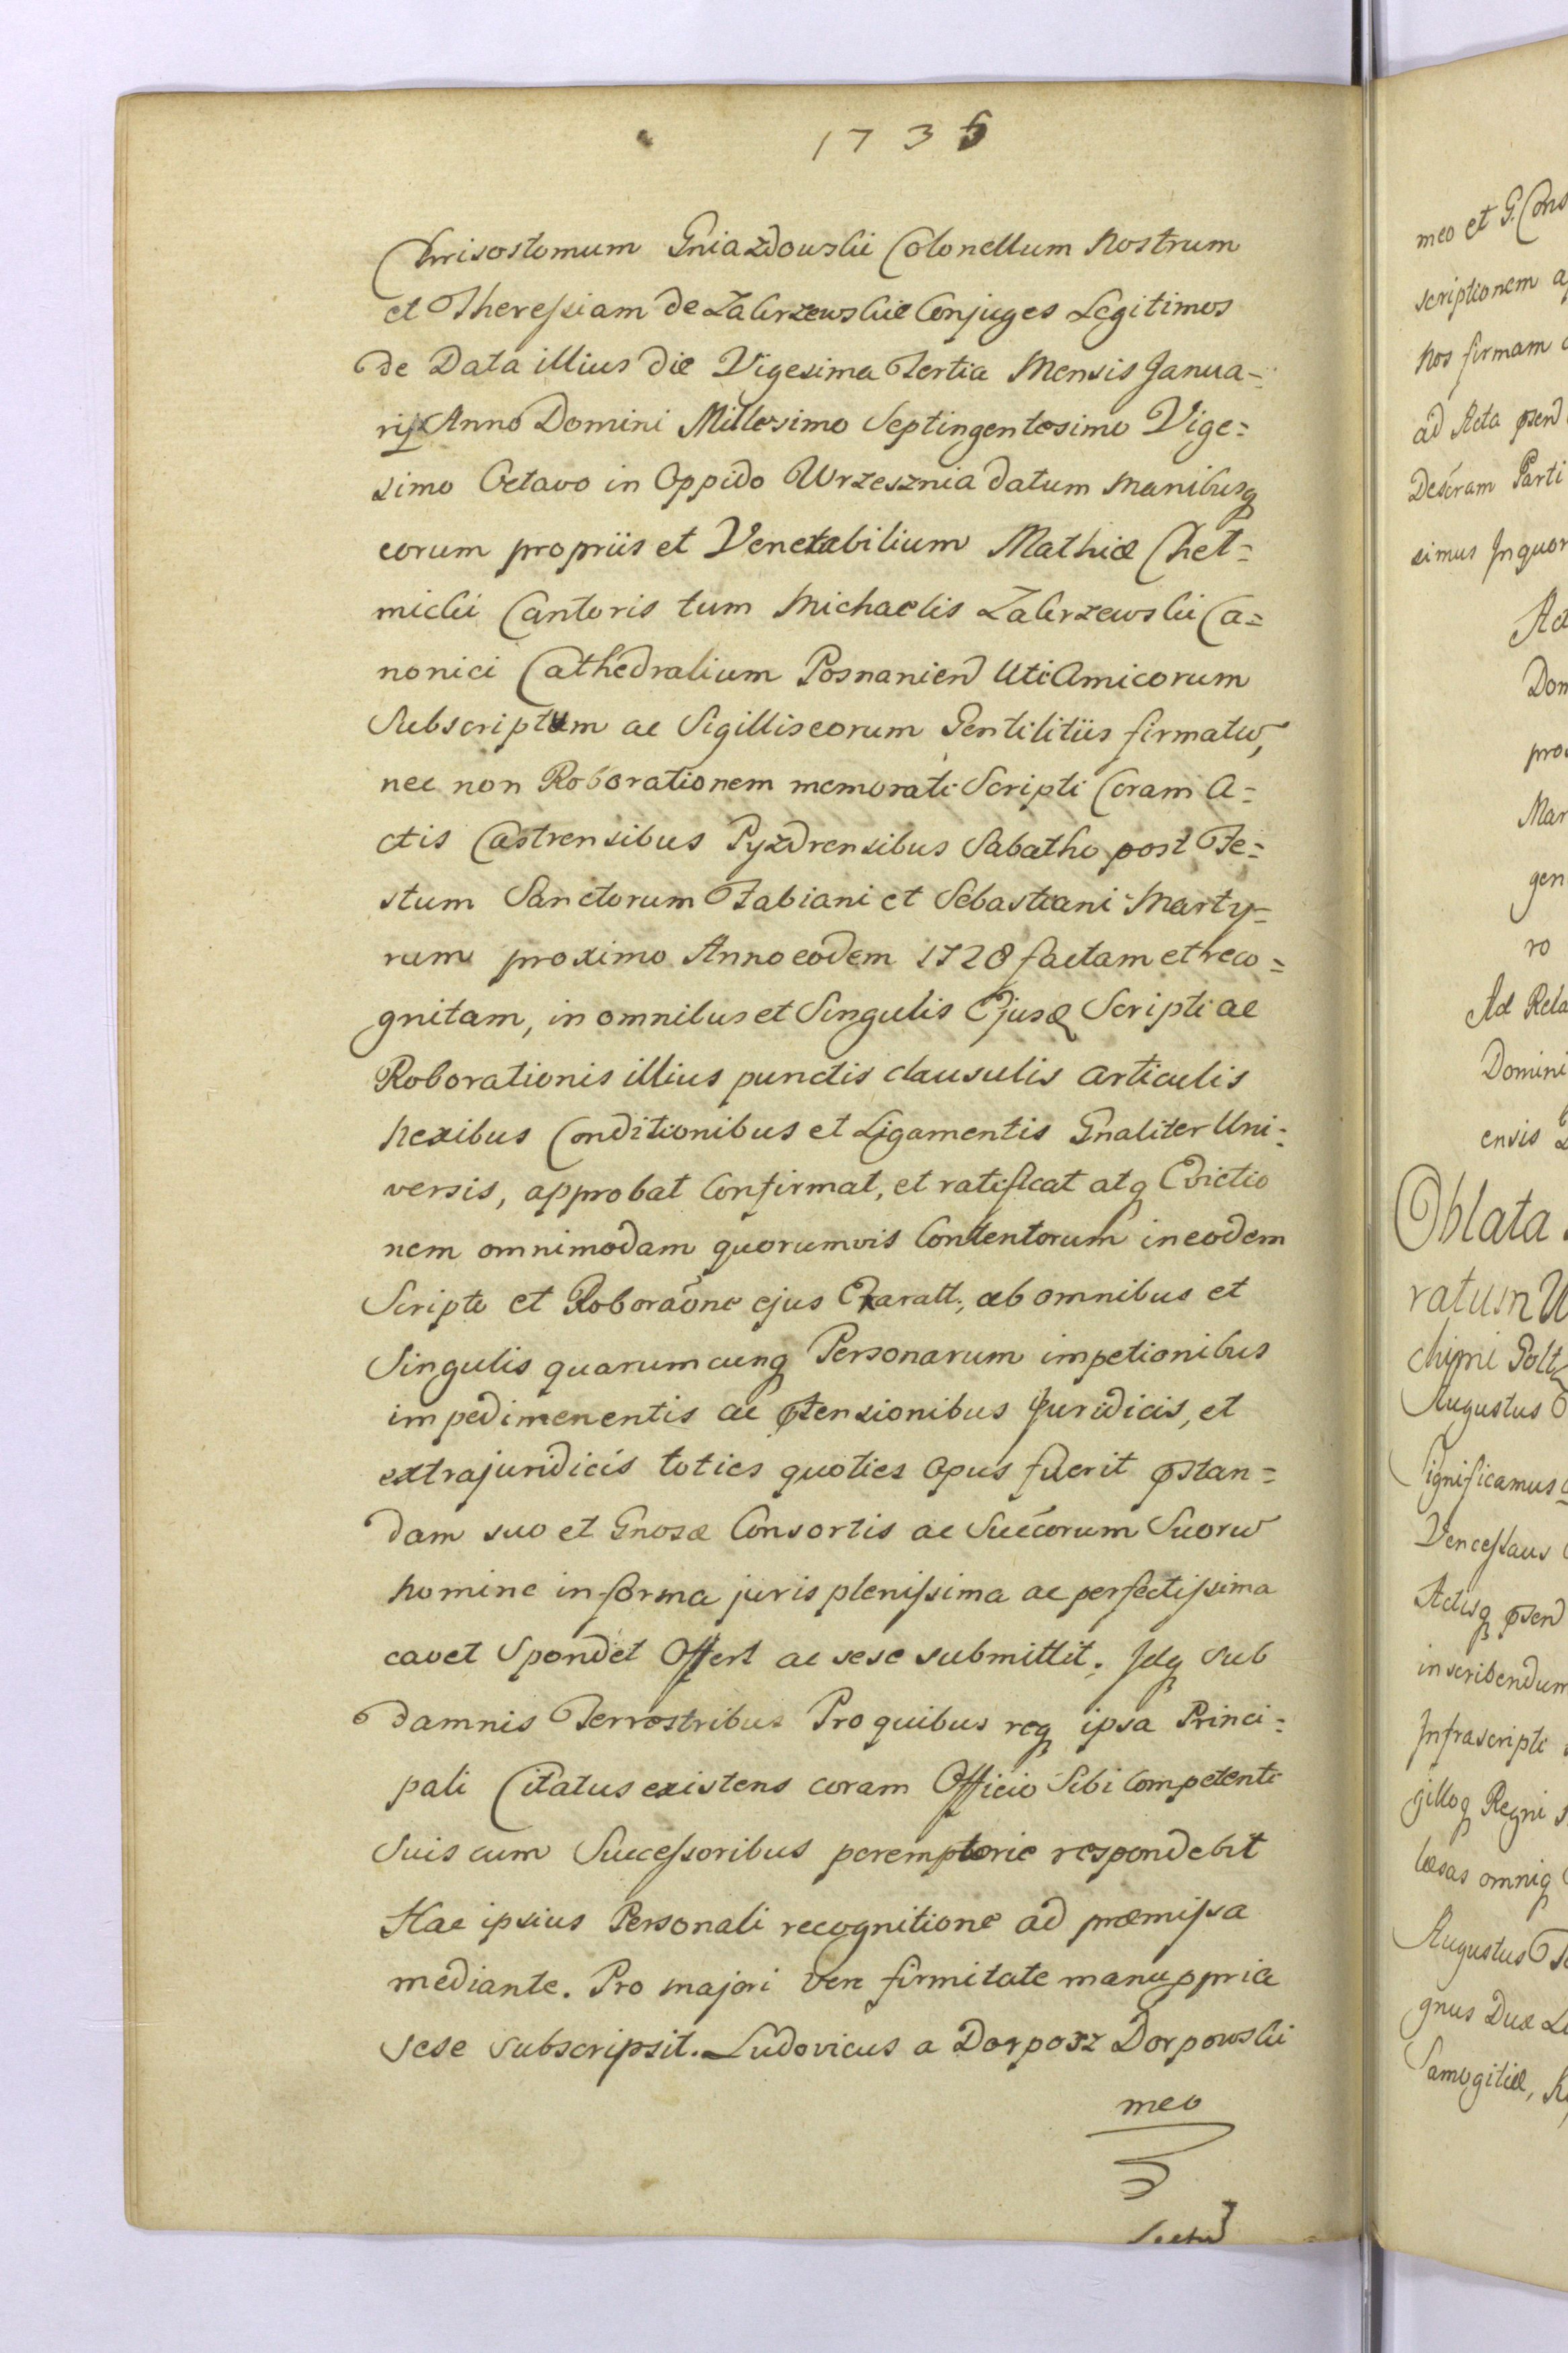 1735
Chrisostomum Gniazdowski Colonellum Nostrum
et Theressiam de Zakrzewskie Conjuges Legitimos
de Data illius die Vigesima Tertia Mensis Janua-
rij Anno Domini Millesimo Septingentesimo Vige=
simo Octavo in Oppido Wrzesznia datum Manibusq
eorum propriis et Venerabilium Mathiæ Chet=
micki Cantoris tum Michaelis Zakrzewski Ca=
nonici Cathedralium Posnanien Uti Amicorum
Subscriptum ac Sigillis eorum Gentilitiis firmatū,
nec non Roborationem memorati Scripti Coram A=
ctis Castrensibus Pyzdrensibus Sabatho post Fe=
stum Sanctorum Fabiani et Sebastiani Marty=
rum proximo Anno eodem 1728 factam et reco=
gnitam, in omnibus et Singulis Ejusd Scripti ac
Roborationis illius punctis clausulis articulis
Nexibus Conditionibus et Ligamentis Gnaliter Uni=
versis, approbat Confirmat, et ratificat atq Evictio
nem omnimodam quorumvis Contentorum in eodem
Scripto et Roboraone ejus Exaratt., ab omnibus et
Singulis quarumcunq Personarum impetionibus
impedimenentis ac ptensionibus Juridicis, et
extrajuridicis toties quoties Opus fuerit pstan=
dam suo et Gnosæ Consortis ac Succorum Suorū
Nomine in forma juris plenissima ac perfectissima
cavet Spondet Offert ac sese submittit. Idq Sub
damnis Terrestribus Pro quibus req ipsa Princi=
pali Citatus existens coram Officio Sibi Competenti
Suis cum Successoribus peremptorie respondebit
Hac ipsius Personali recognitione ad præmissa
mediante. Pro majori vero firmitate manu ppria
sese subscripsit. Ludovicus a Dorposz Dorpowski
meo
meo et G. Cons
scriptionem
Nos firmam
ad Acta psen
Descram Parti
simus In quor
Act
Dom
pro
Mar
gen
ro
Ad Rela
Domini
ensis
Oblata
ratum
chimi Polt
Augustus
Significamus
Venceslaus
Actisq psen
inscribendum
Infrascripti
gilloq Regni
læsas omniq
Augustus
gnus Dux
Samogitiæ,